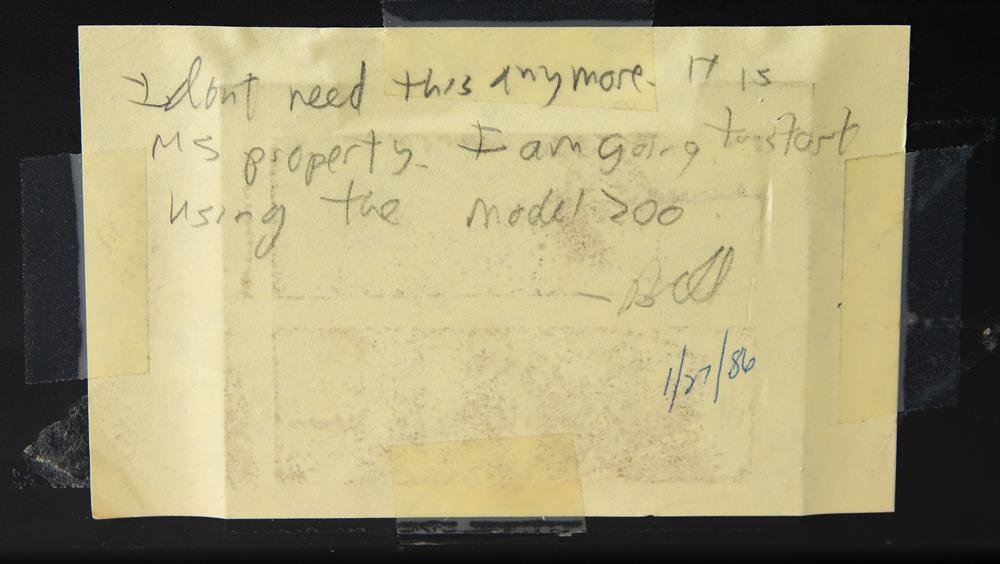 I dont need this anymore. It is
MS property. I am going to start
using the model 200
— Bill
1/27/86